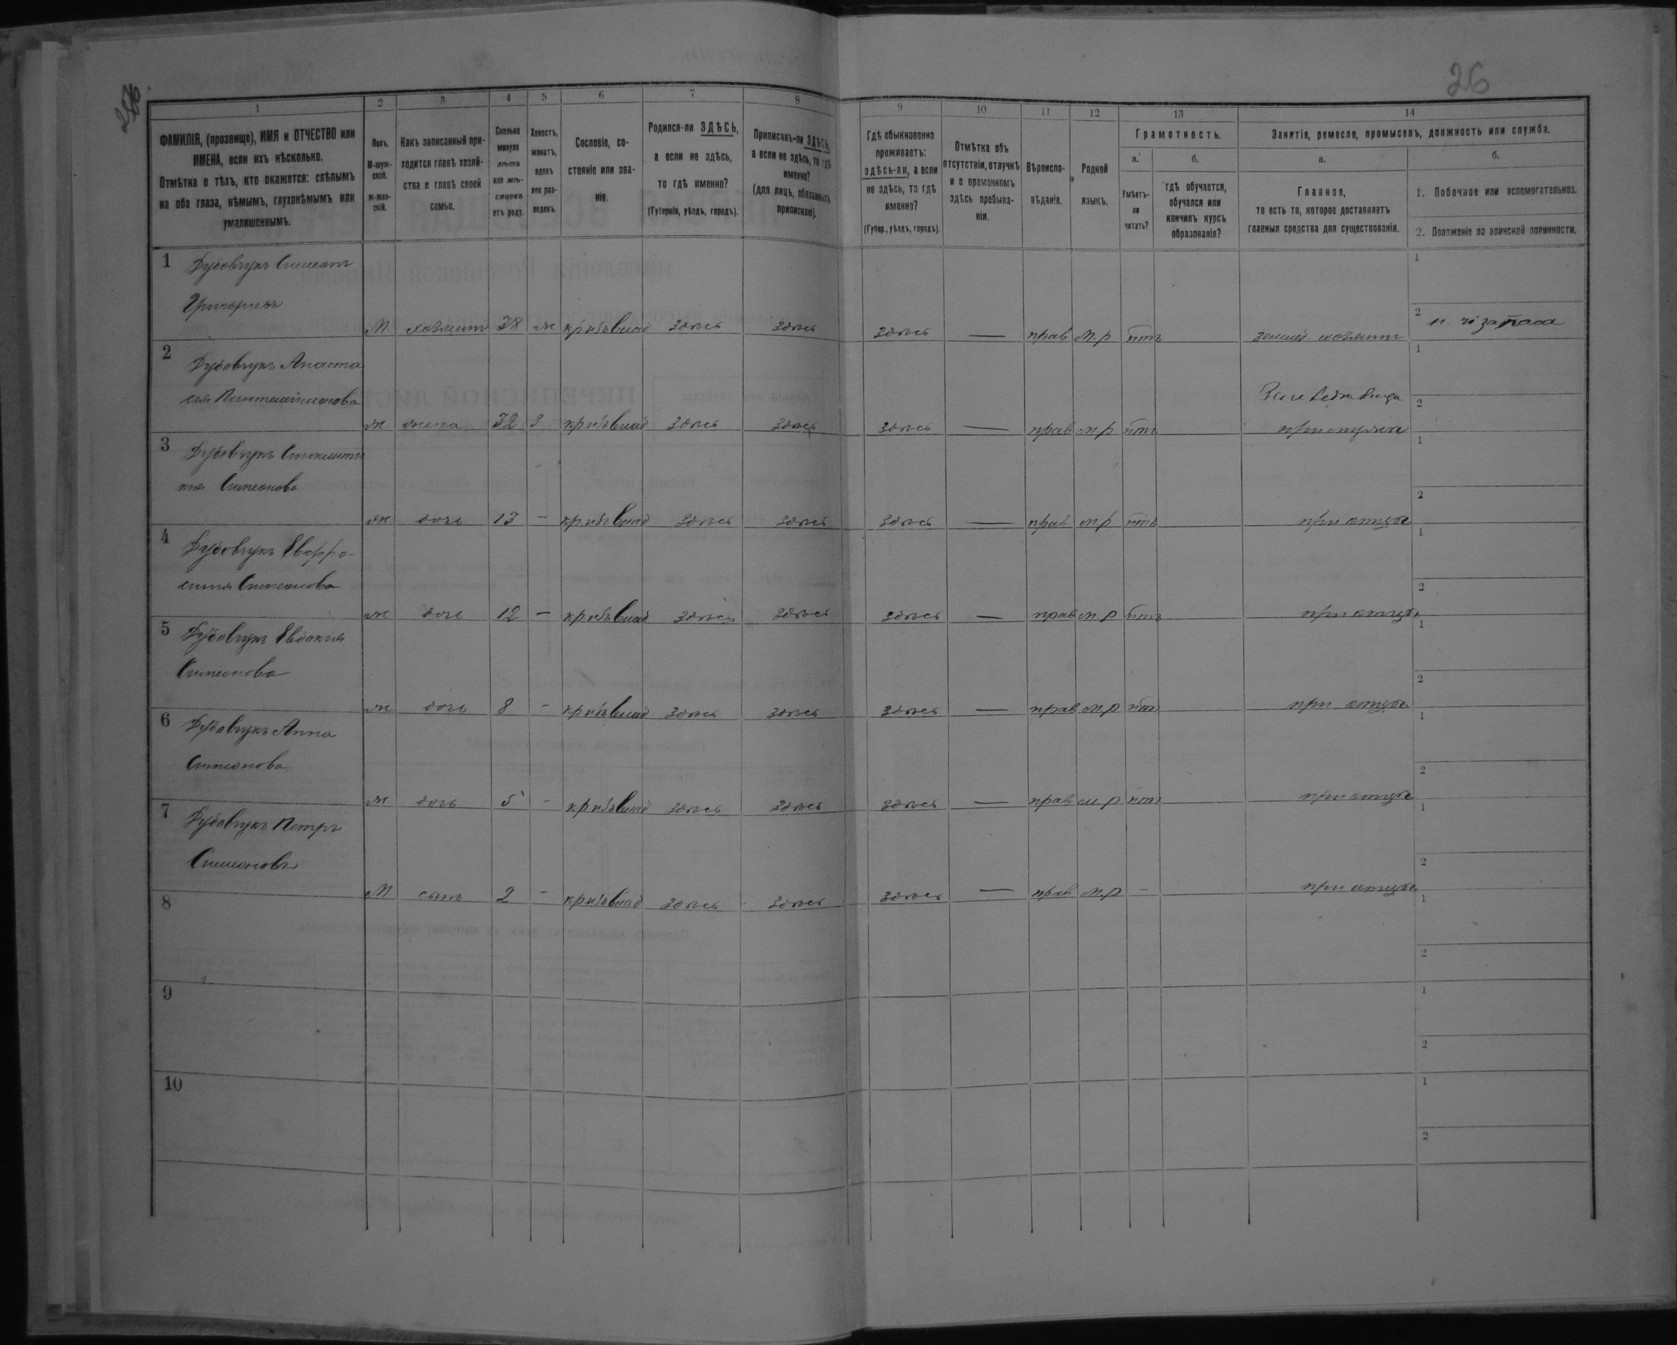 26
1 2 3 4 5 6 7 8 9 10 11 12 13 14
ФАМИЛІЯ, (прозвище), ИМЯ и ОТЧЕСТВО или
ИМЕНА, если ихъ нѣсколько.
Отмѣтка о тѣхъ, кто окажется: слѣпымъ
на оба глаза, нѣмымъ, глухонѣмымъ или
умалишеннымъ.
Полъ.
М-муж-
ской.
ж-жен-
скій.
Какъ записанный при-
ходится главѣ хозяй-
ства и главѣ своей
семьи.
Сколько
минуло
лѣтъ
или мѣ-
сяцевъ
отъ роду.
Холостъ,
женатъ,
вдовъ
или раз-
веденъ.
Сословіе, со-
стояніе или зва-
ніе.
Родился-ли ЗДѢСЬ,
а если не здѣсь,
то гдѣ именно?
(Губернія, уѣздъ, городъ).
Приписанъ-ли ЗДѢСЬ,
а если не здѣсь, то гдѣ
именно?
(для лицъ, обязанныхъ
припискою).
Гдѣ обыкновенно
проживаетъ:
здѣсь-ли, а если
не здѣсь, то гдѣ
именно?
(Губер., уѣздъ, городъ).
Отмѣтка объ
отсутствіи, отлучкѣ
и о временномъ
здѣсь пребыва-
ніи.
Вѣроиспо-
вѣданіе.
Родной
языкъ.
Грамотность.
а. б.
Умѣетъ-
ли
читать?
гдѣ обучается,
обучался или
кончилъ курсъ
образованія?
Занятіе, ремесло, промыселъ, должность или служба.
а. б.
Главное,
то есть то, которое доставляетъ
главныя средства для существованія.
1. Побочное или вспомогательное.
2. Положеніе по воинской повинности.
1 Дубовчукъ Симеонъ
Григорьевъ
М хозяинъ 38 ж здѣсь здѣсь здѣсь — прав м.р нѣтъ
2 Дубовчукъ Анаста
сія
ж жена 32 з здѣсь здѣсь здѣсь — прав м.р нѣтъ
3 Дубовчукъ
Симеонова
ж дочь 13 — здѣсь здѣсь здѣсь — прав м р нѣтъ при отцѣ
4 Дубовчукъ Евфро-
синія Симеонова
ж дочь 12 — здѣсь здѣсь здѣсь — прав м р нѣтъ при отцѣ
5 Дубовчукъ Евдокія
Симеонова
ж дочь 8 — здѣсь здѣсь здѣсь — прав м.р нѣтъ при отцѣ
6 Дубовчукъ Анна
Симеонова
ж дочь 5 — здѣсь здѣсь здѣсь — прав м.р нѣтъ при отцѣ
7 Дубовчукъ Петръ
Симеоновъ
М сынъ 2 — здѣсь здѣсь здѣсь — прав м.р — при отцѣ
8
9
10